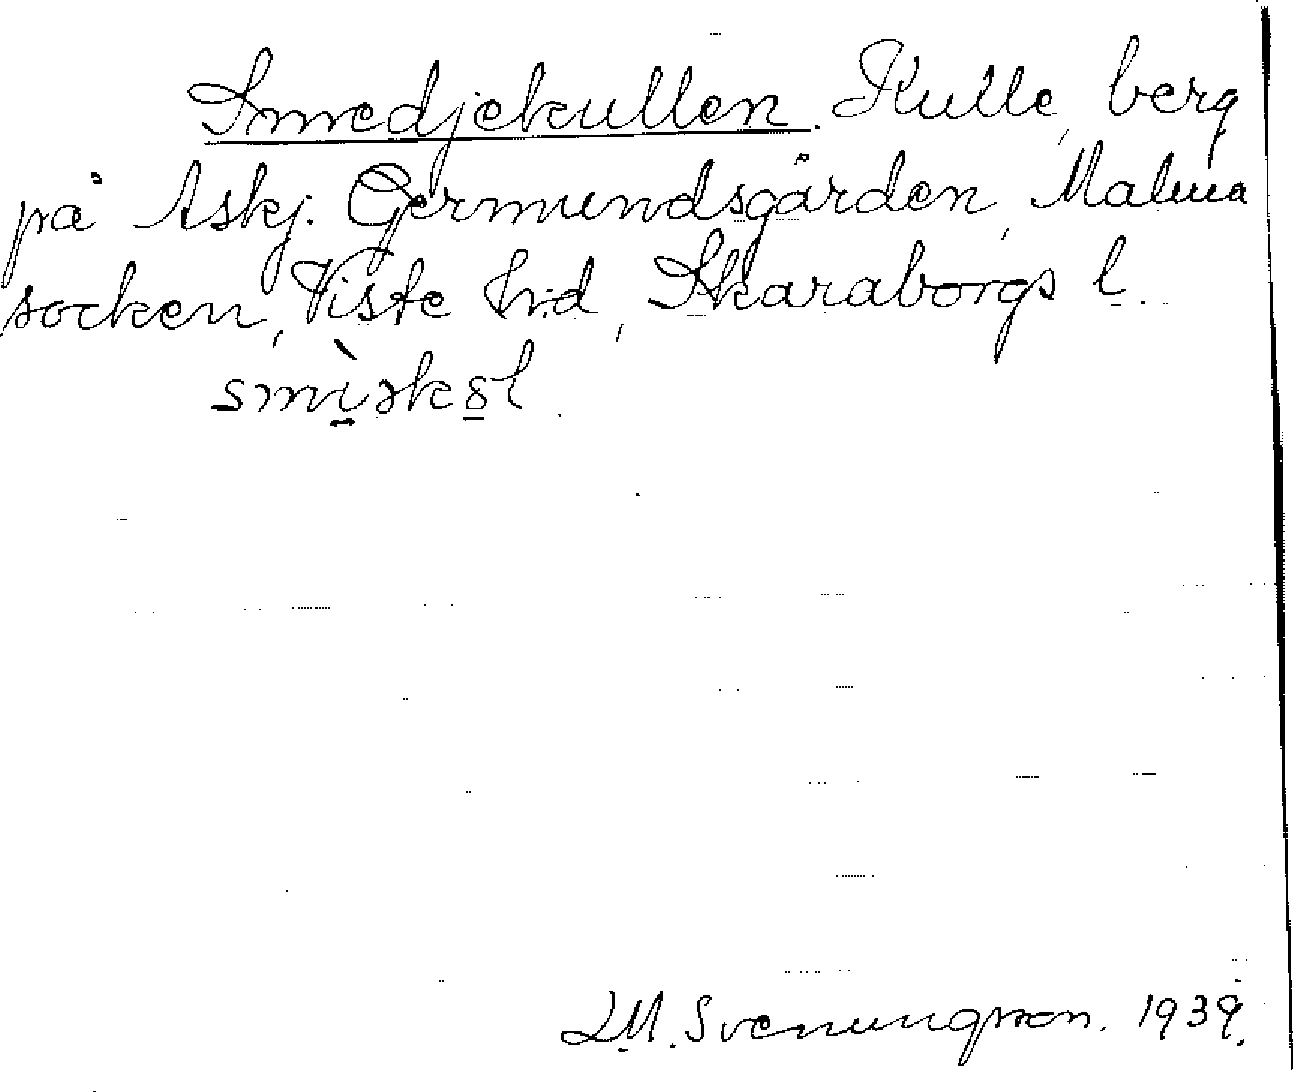 Smedjekullen. Kulle, berg
på Askj. Germundsgården, Malma
socken, Viste hrd, Skaraborgs l.
L.M. Svenungsson. 1939.